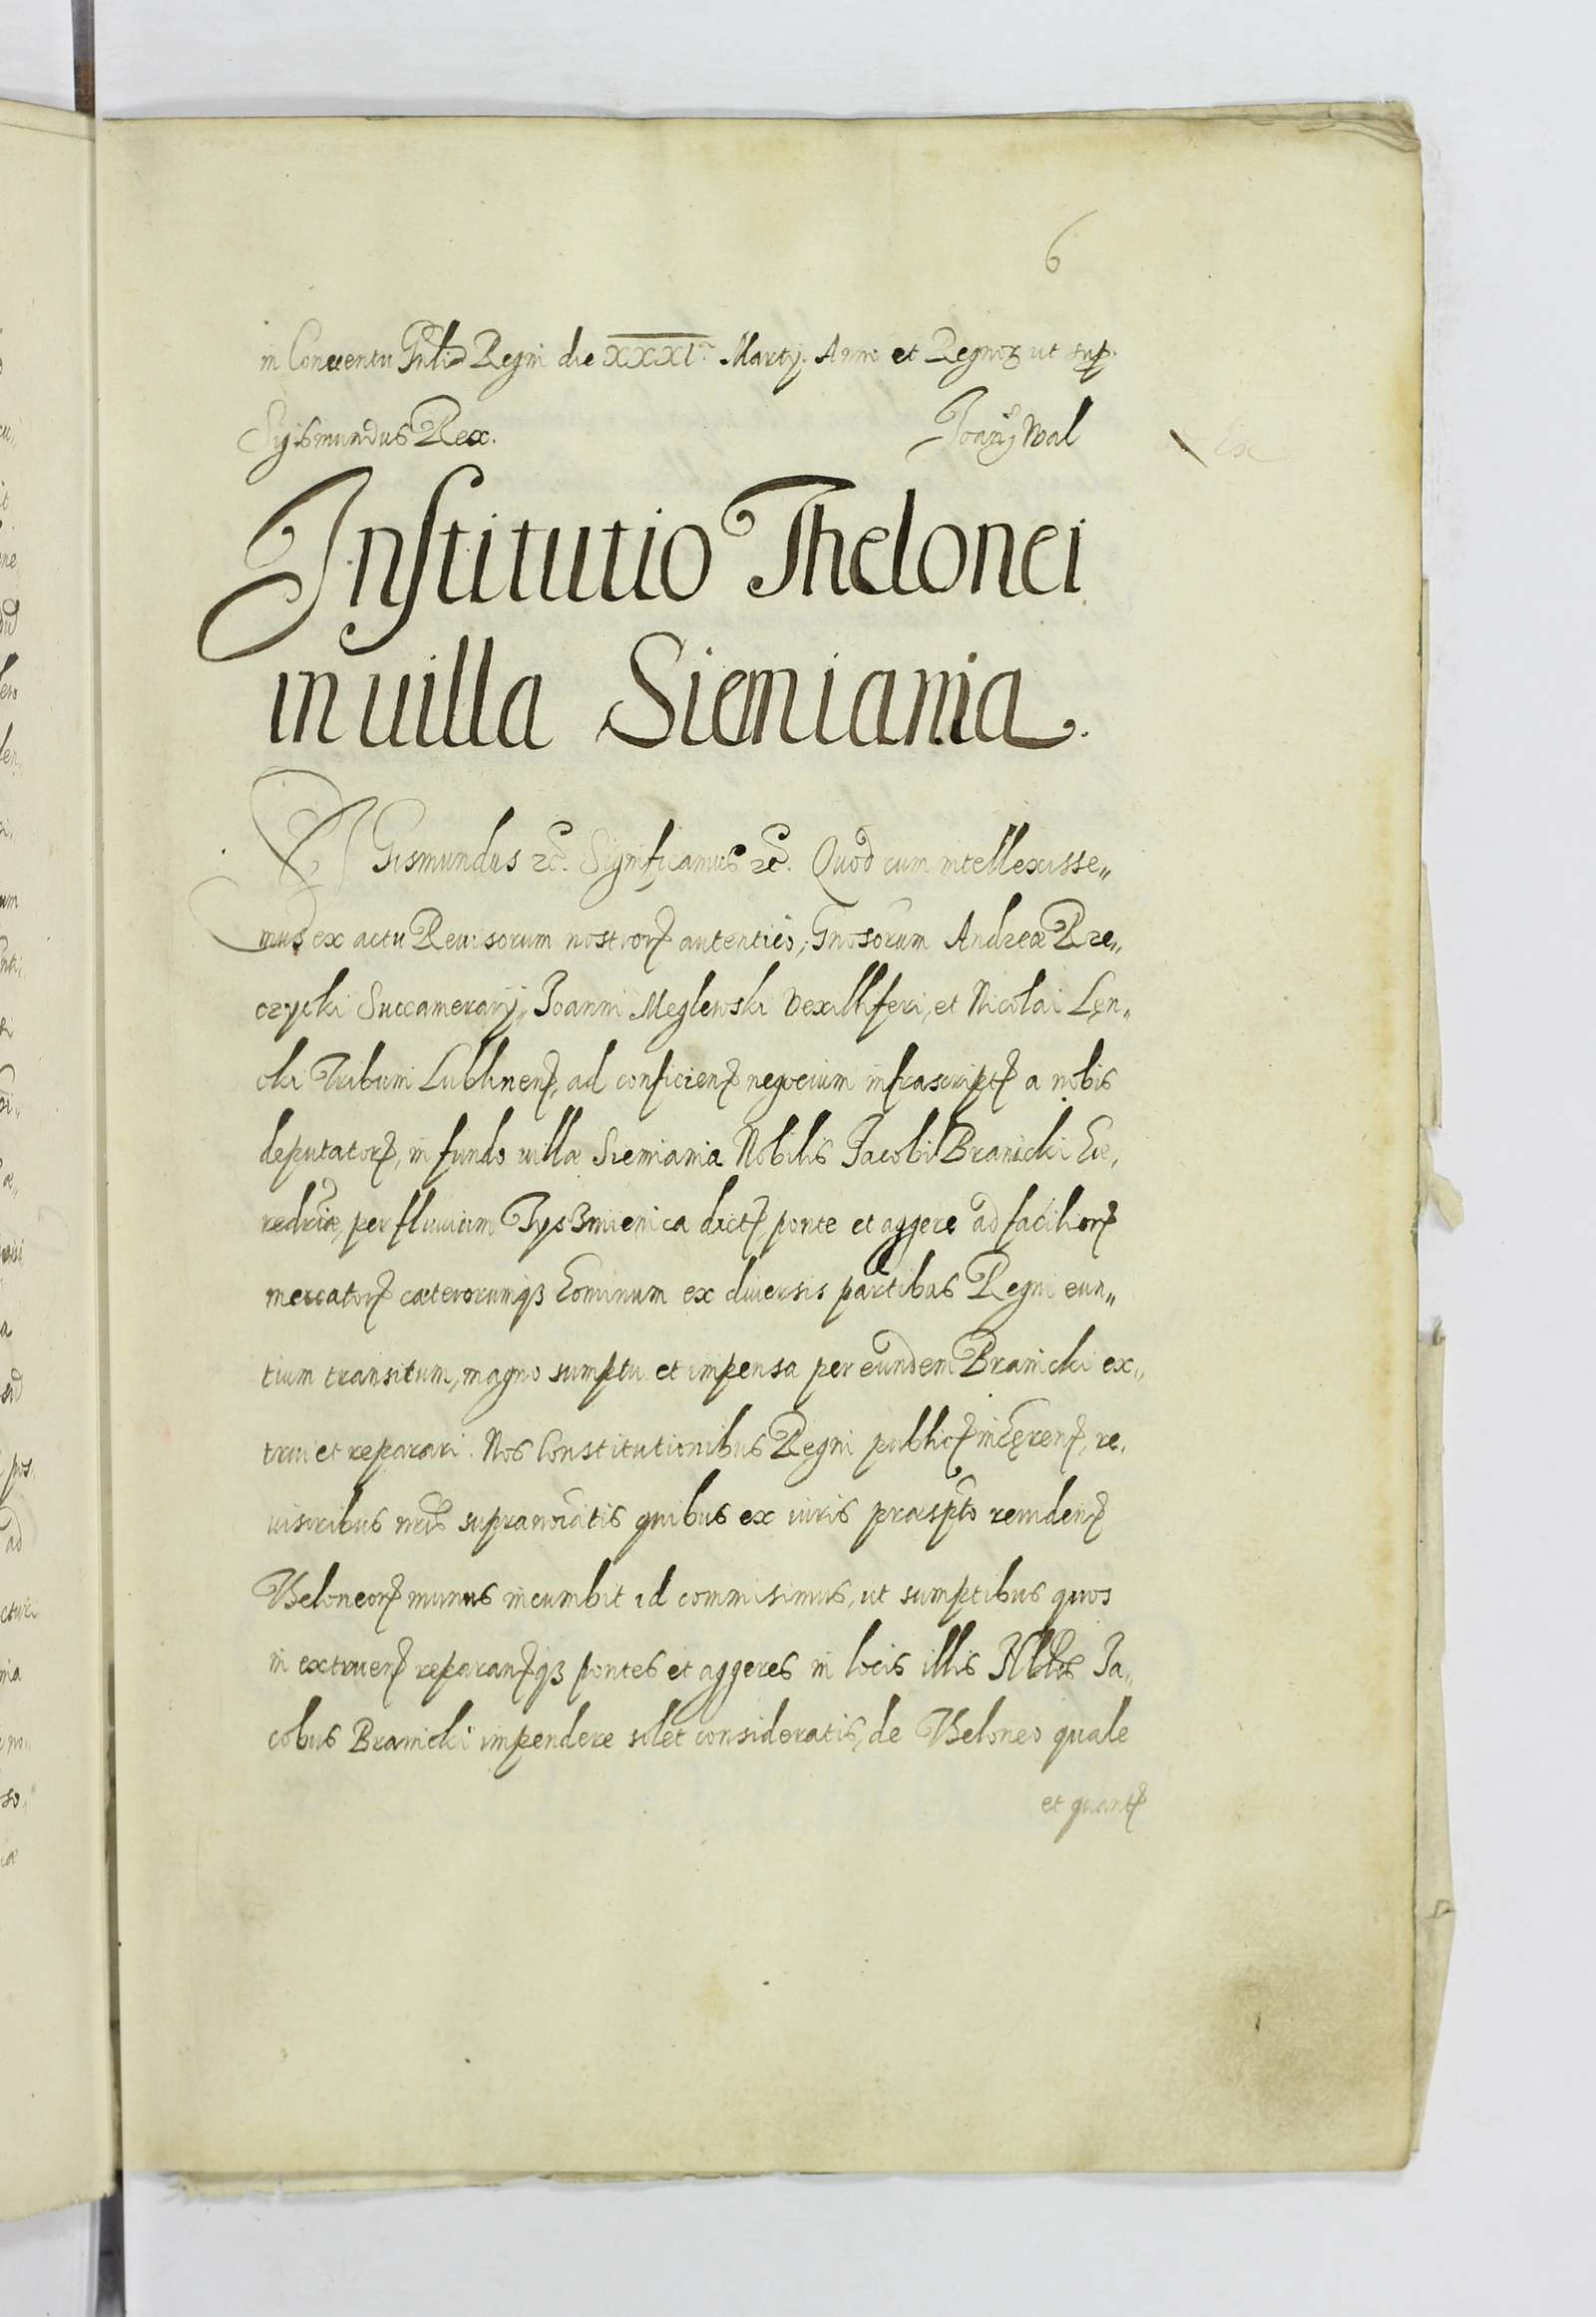 6
in Conuentu Gnli Regni die XXXI. Martij. Anno et Regnorꝫ ut sup.
Sigismundus Rex. Joañ Wal
Ex
Institutio Thelonei
in uilla Siemiania.
SIGismundus ꝛc. Significamus ꝛc. Quod cum intellexisse„
mus ex actu Reuisorum nostrorꝫ autentico, Gnosorum Andreæ Rze„
czycki Succamerarij, Joanni Meglewski Vexilliferi, et Nicolai Lęn„
cki Tribuni Lublinenꝫ, ad conficienꝫ negocium infrascriptꝫ a nobis
deputatorꝫ, in fundo uillæ Siemiania Nobilis Jacobi Branicki hæ,
reditriæ, per fluuium Tysmienica dictꝫ, ponte et aggere ad faciliorꝫ
mercatorꝫ cæterorumqꝫ hominum ex diuersis partibus Regni eun„
tium transitum, magno sumptu et impensa per eundem Branicki ex„
trui et reparari. Nos Constitutionibus Regni publicꝫ inhęrenꝫ, re,
uisoribus nris supranoiatis quibus ex iuris præscpto reuidenꝫ
Theloneorꝫ munus incumbit id commisimus, ut sumptibus quos
in extruenꝫ reparanꝫqꝫ pontes et aggeres in locis illis Nblis Ja„
cobus Branicki impendere solet consideratis, de Theloneo quale
et quantꝫ